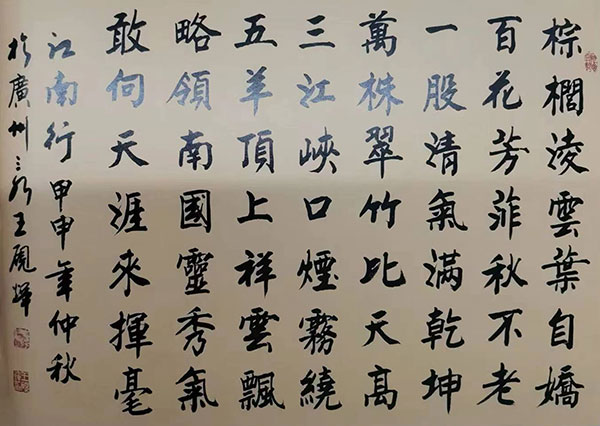 棕櫚淩雲葉自嬌
百花芳菲秋不老
一股清氣滿乾坤
萬株翠竹比天高
三江峽口煙霧繞
五羊頂上祥雲飄
略領南國靈秀氣
敢向天涯來揮毫
江南行 甲申年仲秋
於廣州 王輝